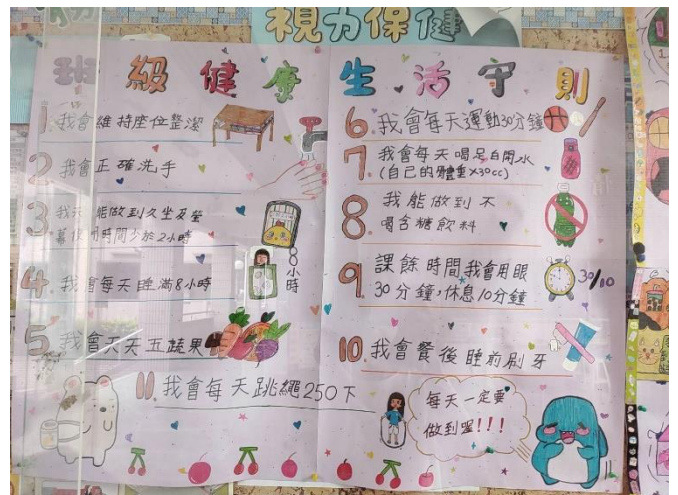 視力保健
班級健康生活守則
1.我會維持座位整潔
2 我會正確洗手
3 我能做到久坐及螢
幕使用時間少於2小時
4 我會每天睡滿8小時
8小時
5 我會天天五蔬果
6.我會每天運動30分鐘
7.我會每天喝足白開水
(自己的體重×30cc)
8.我能做到不
喝含糖飲料
9.課餘時間我會用眼
30分鐘,休息10分鐘
30/10
10.我會餐後睡前刷牙
11.我會每天跳繩250下
每天一定要
做到喔!!!